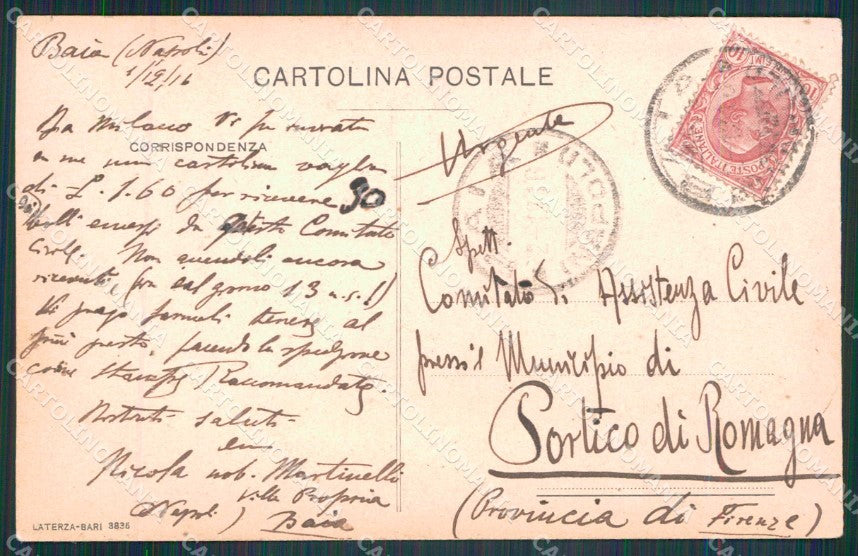 Baia (Napoli)
1/12/16
CARTOLINA POSTALE
CORRISPONDENZA
Da Milano Vi fu inviata
a me una cartolina vaglia
di £. 1.60 per ricevere 30
bolli emessi da questo Comitato
Civile. Non avendoli ancora
ricevuti, (fin dal giorno 13 u.s.!)
Vi prego farmeli tenere al
più presto, facendo la spedizione
come stampe Raccomandate.
Distinti saluti
Nicola nob. Martinelli
Villa Propria
(Napoli) Baia
Urgente
Spett.
Comitato di Assistenza Civile
presso il Municipio di
Portico di Romagna
(Provincia di Firenze)
POSTE ITALIANE
BAIA (NAPOLI)
LATERZA-BARI 3836
CARTOLINOMANIA